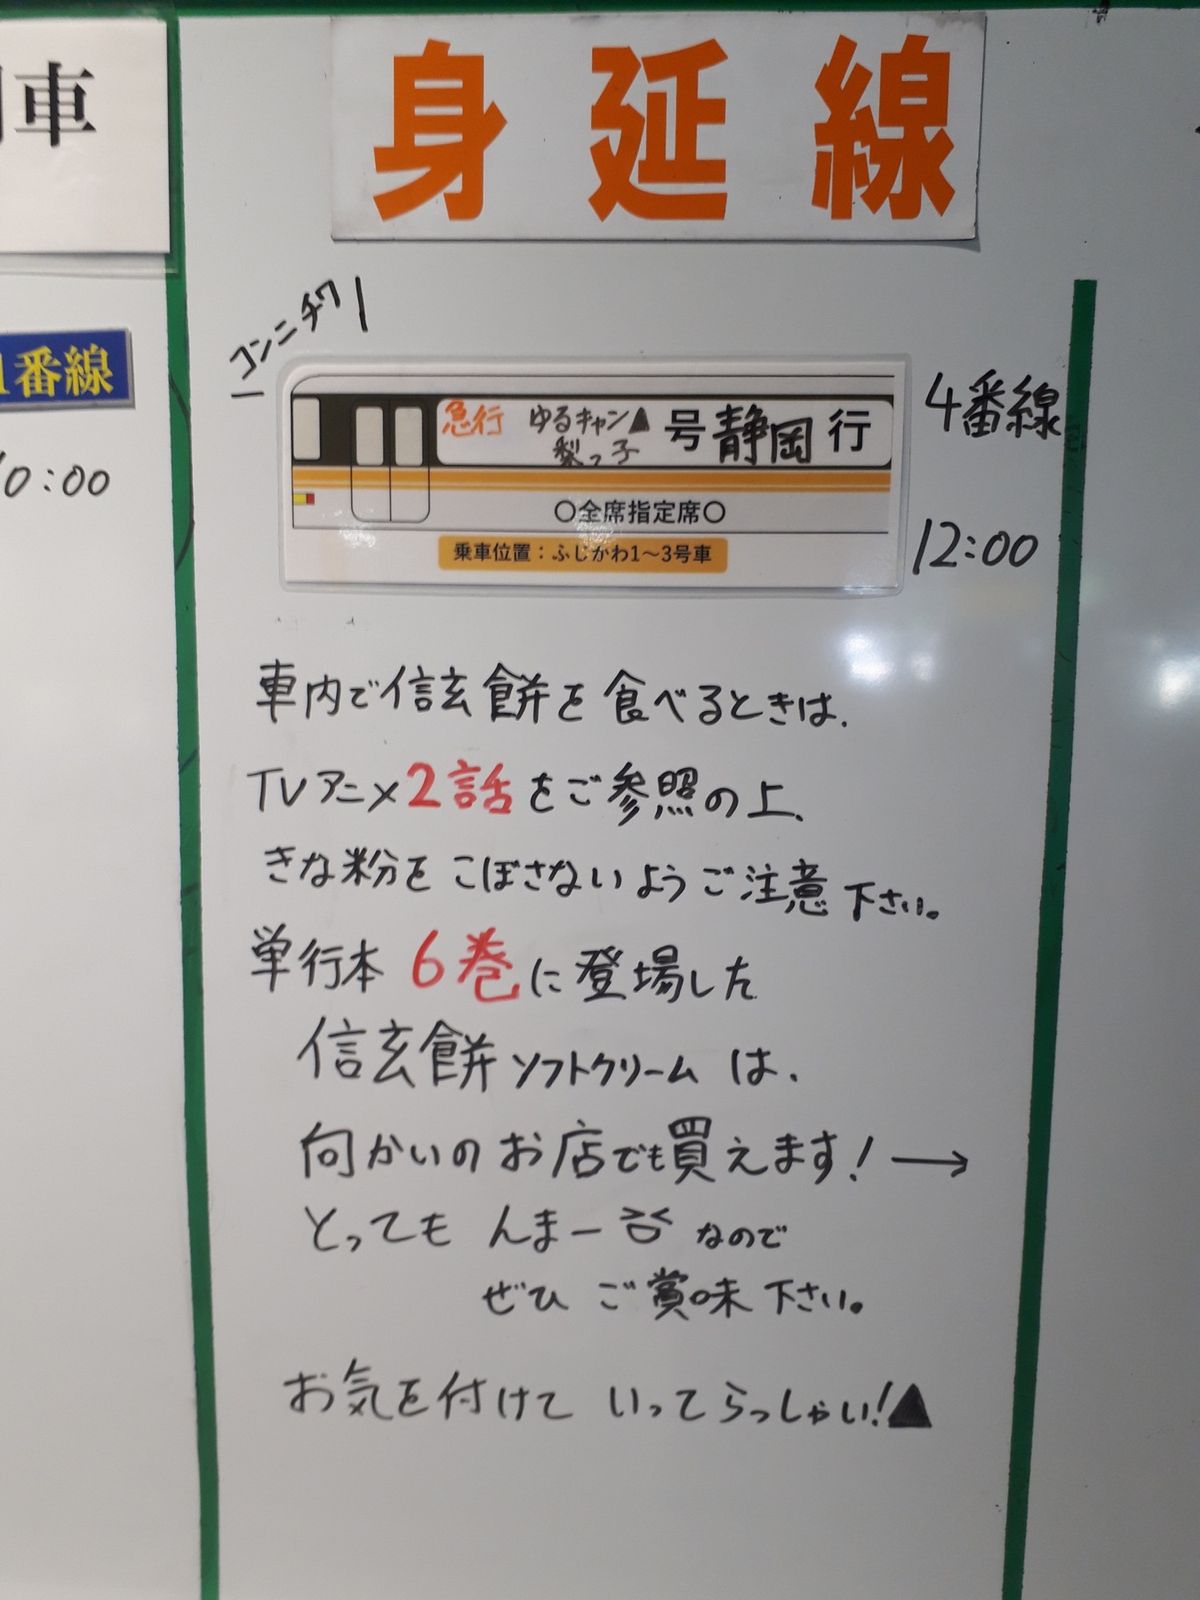 車
身延線
コンニチワ
1番線
10:00
急行 ゆるキャン▲梨っ子 号 静岡 行
〇全席指定席〇
乗車位置：ふじかわ1〜3号車
4番線
12:00
車内で信玄餅を食べるときは、
TVアニメ2話をご参照の上、
きな粉をこぼさないようご注意下さい。
単行本 6巻に登場した
信玄餅ソフトクリームは、
向かいのお店でも買えます!→
とっても んまー なので
ぜひ ご賞味下さい。
お気を付けて いってらっしゃい!▲